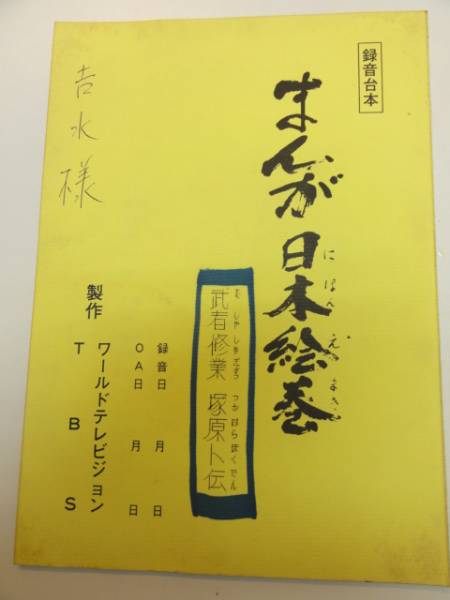 録音台本
まんが日本絵巻
にほんえまき
むしゃしゅぎょう つかはらぼくでん
武者修業 塚原卜伝
録音日 月 日
OA日 月 日
製作 ワールドテレビジョン
TBS
吉水様